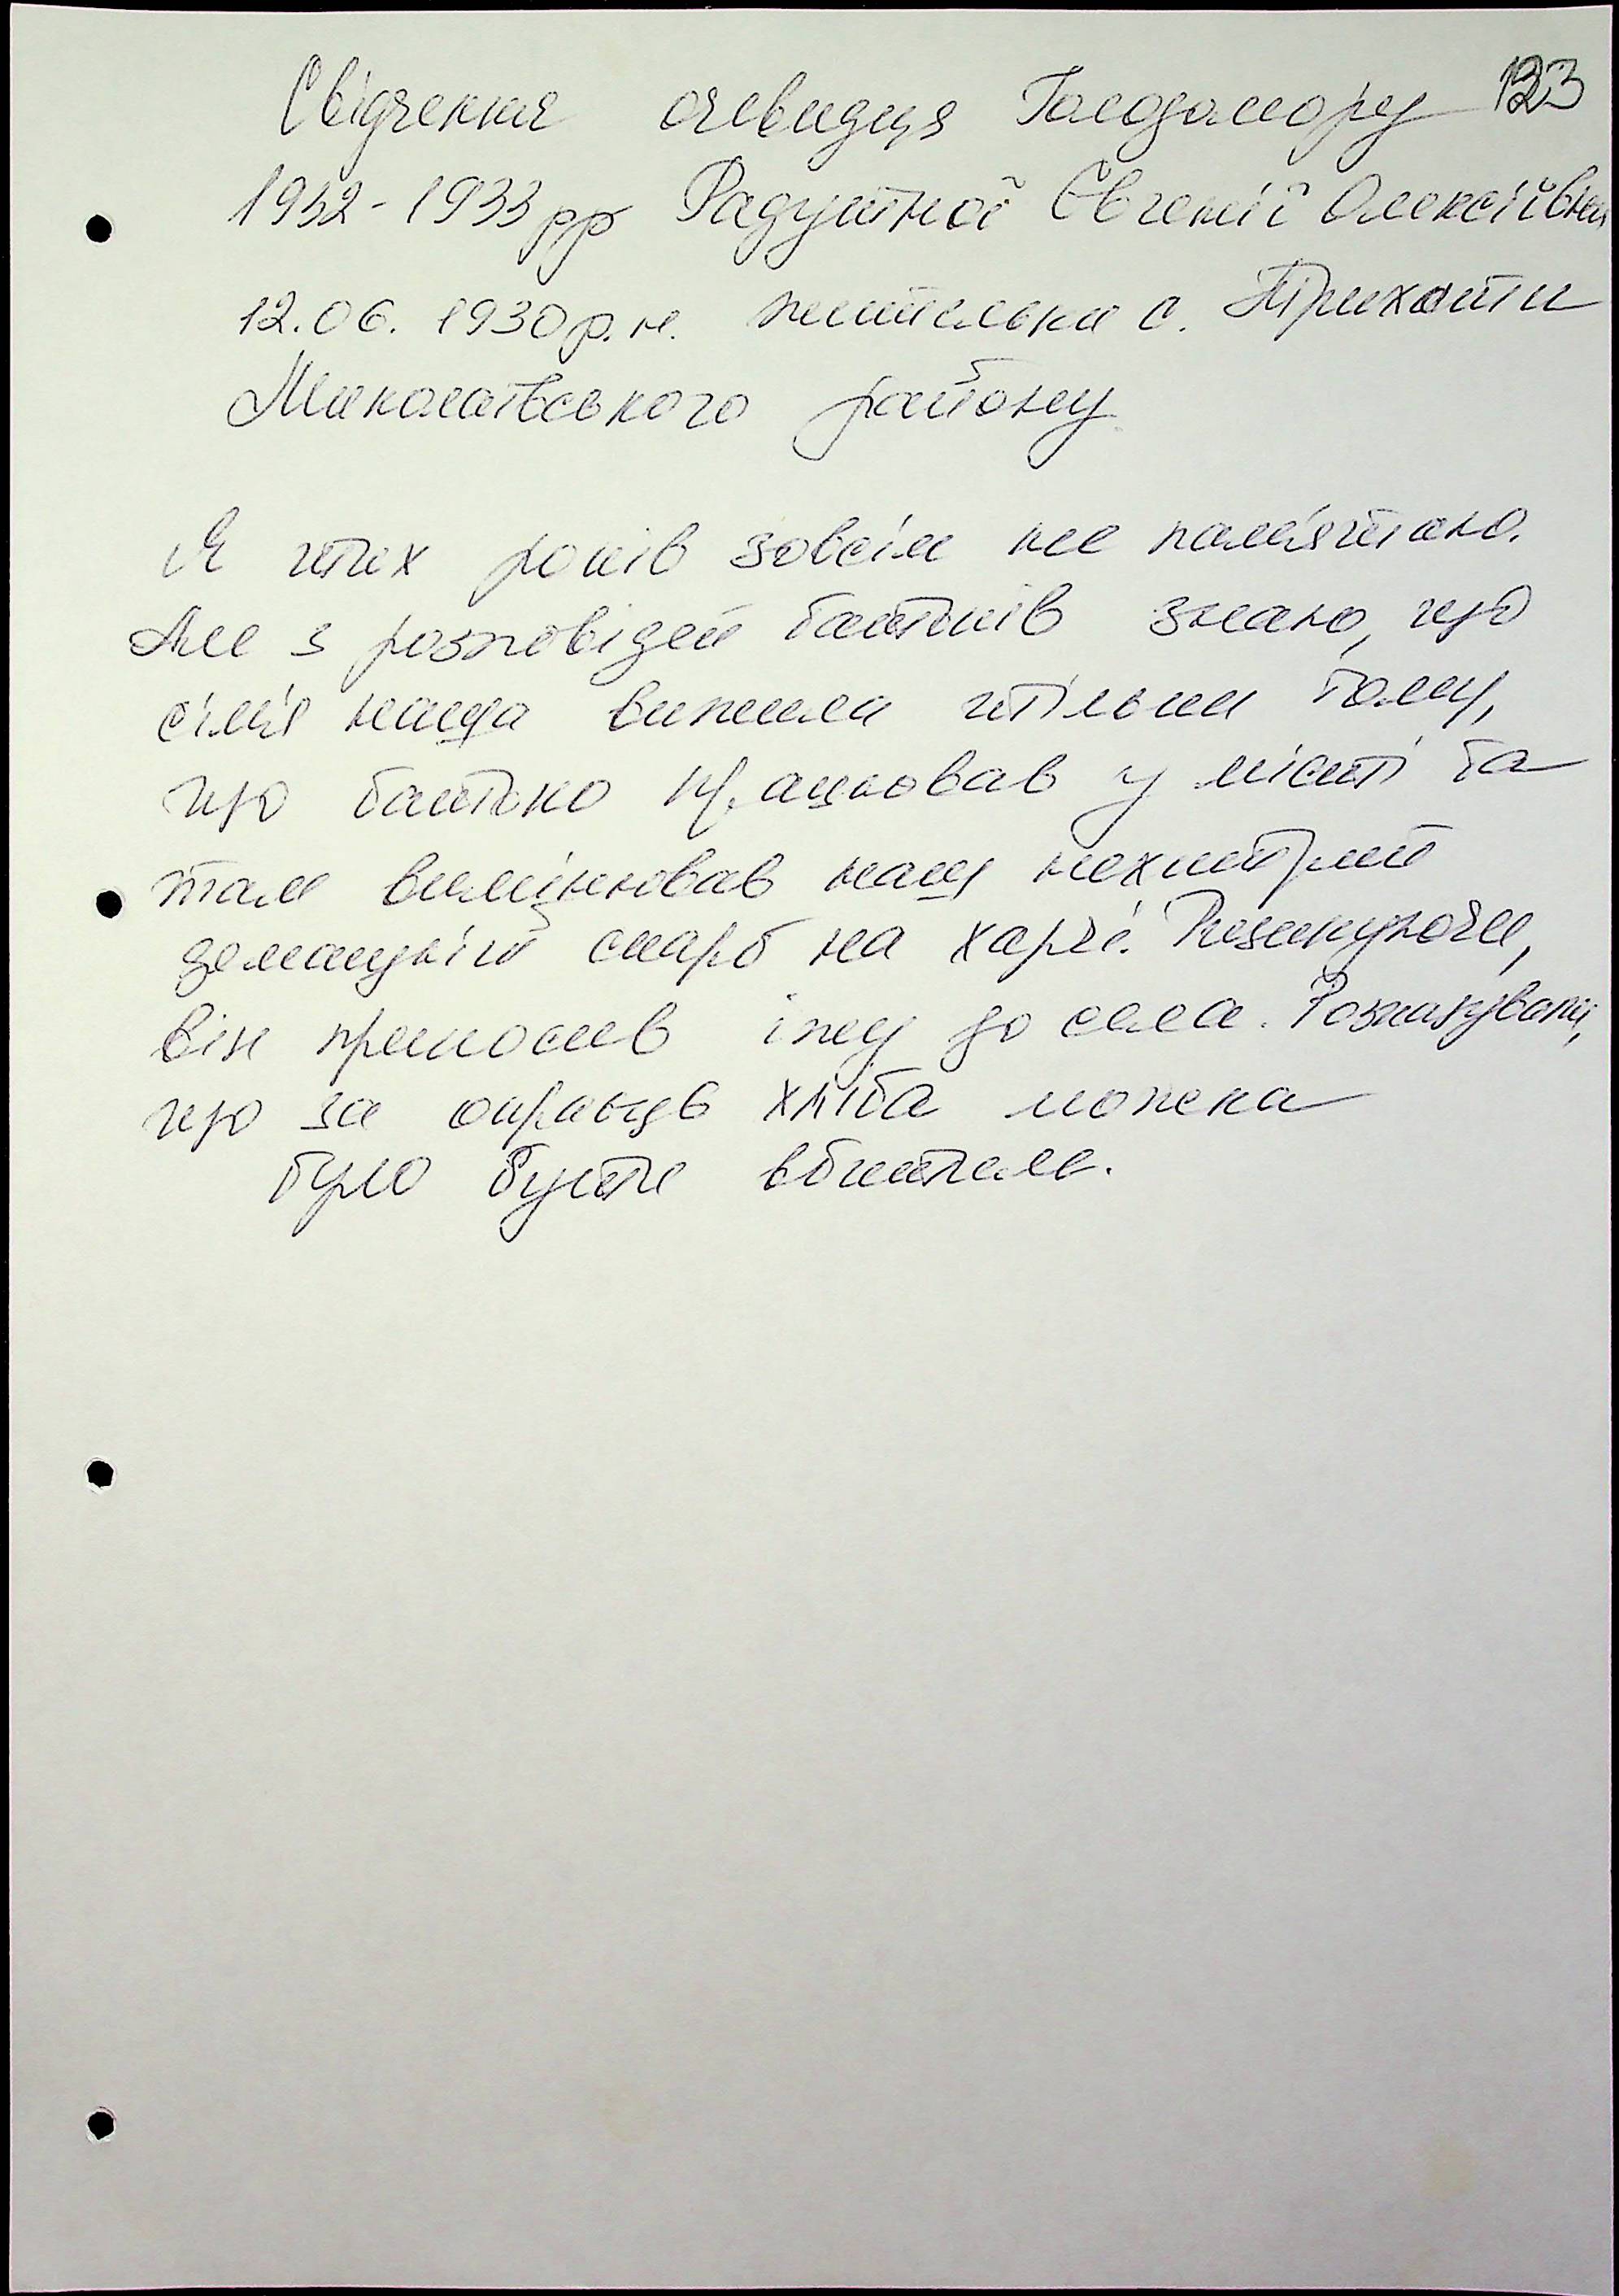 123
Свідчення очевидця Голодомору
1932-1933 рр Радушної Євгенії Олексіївни
12.06. 1930 р.н. жителька с. Трихати
Миколаївського району.
Я тих років зовсім не пам'ятаю.
Але з розповідей батьків знаю, що
сім'я наша вижила тільки тому,
що батько працював у місті та
там вимінював наш нехитрий
домашній скарб на харчі. Ризикуючи,
він приносив їжу до села. Розказували,
що за окраєць хліба можна
було бути вбитим.